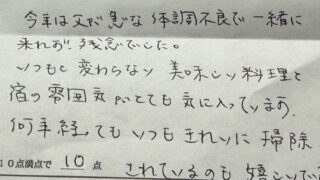 今年は父が急な体調不良で一緒に
来れず残念でした。
いつもと変わらない美味しい料理と
宿の雰囲気がとても気に入っています。
何年経ってもいつもきれいに掃除
10点満点で 10 点
されているのも嬉しいで